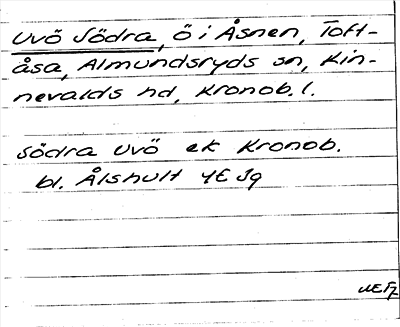 Uvö Södra, Ö i Åsnen, Toft-
åsa, Almundsryds sn, Kin-
nevalds hd, Kronob. l.
Södra Uvö ek Kronob.
bl. Ålshult 4E 5g